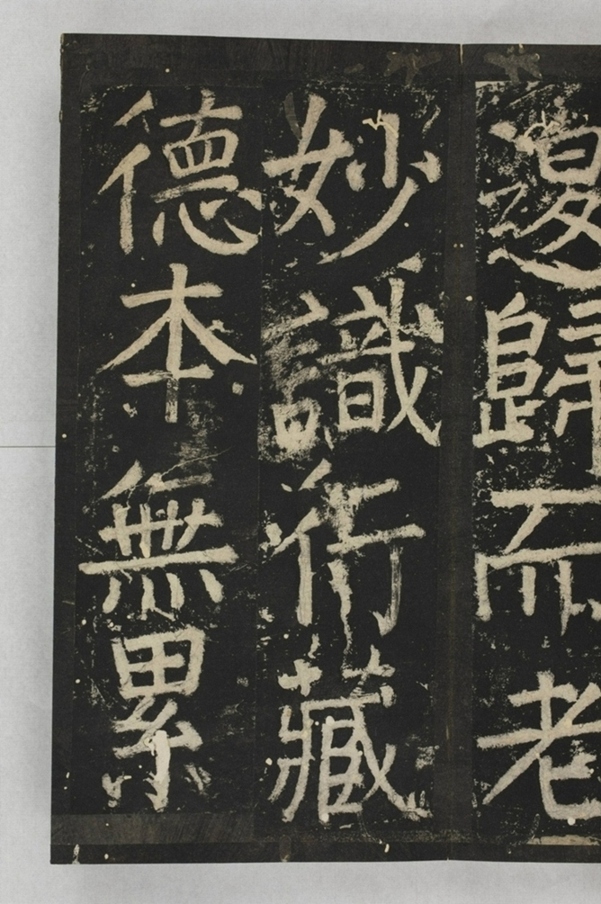 歸而老
妙識行藏
德本無累